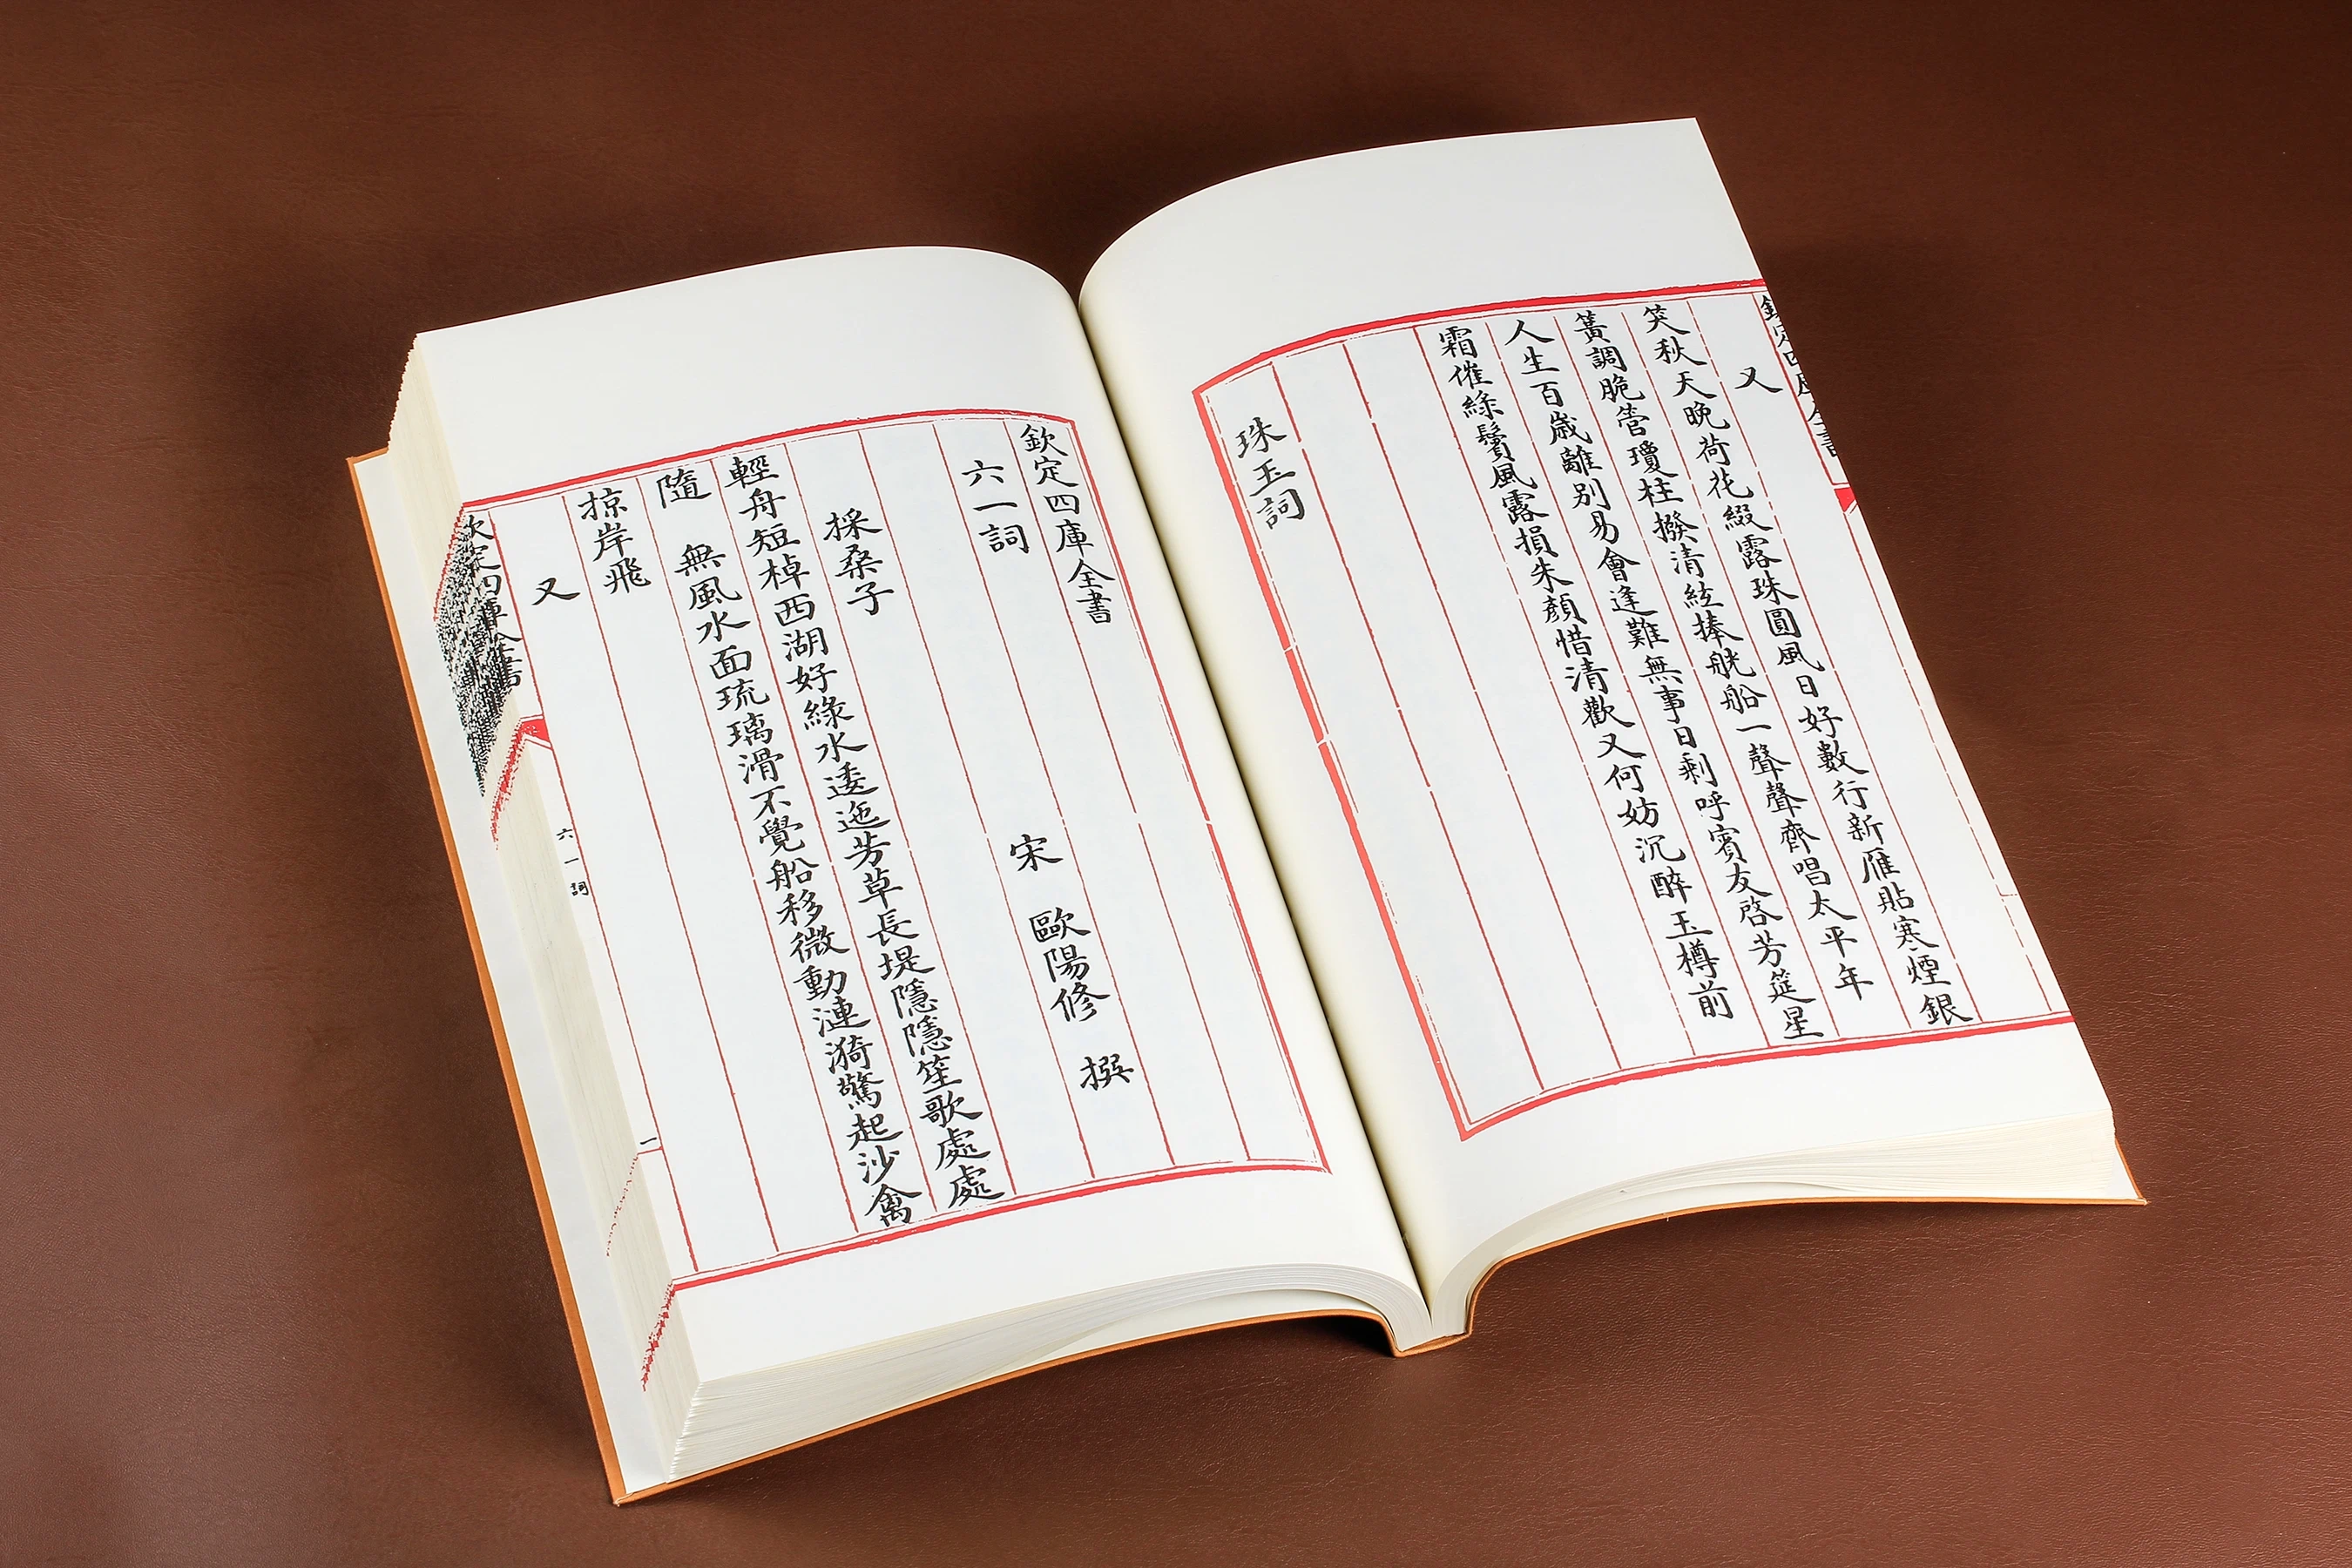 欽定四庫全書
又
笑秋天晚荷花綴露珠圓風日好數行新雁貼寒煙銀
簧調脆管瓊柱撥清絃捧觥船一聲聲齊唱太平年
人生百歲離別易會逢難無事日剩呼賓友啓芳筵星
霜催綠鬢風露損朱顏惜清歡又何妨沉醉玉樽前
珠玉詞
欽定四庫全書
六一詞
宋 歐陽修 撰
採桑子
輕舟短棹西湖好綠水逶迤芳草長堤隱隱笙歌處處
隨 無風水面琉璃滑不覺船移微動漣漪驚起沙禽
掠岸飛
又
欽定四庫全書
六一詞
一